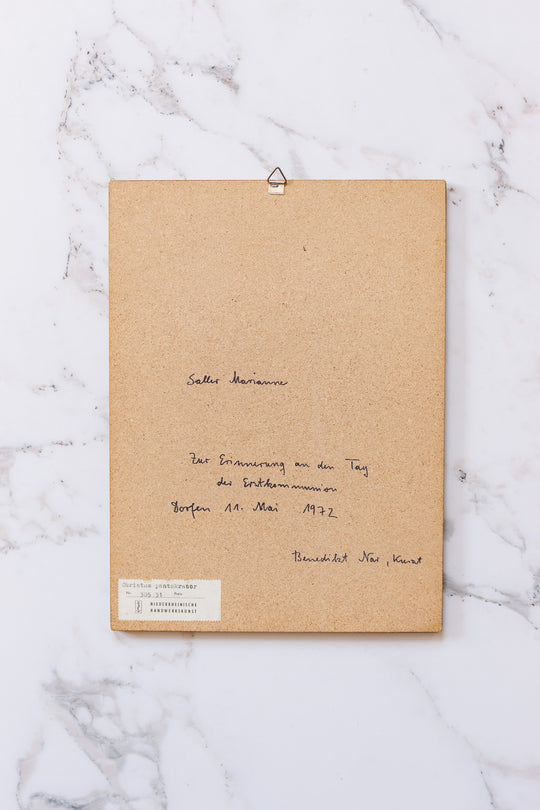 Saller Marianne
Zur Erinnerung an den Tag
der Erstkommunion
Dorfen 11. Mai 1972
Benedikt , Kurat
Christus pantokrator
No. 305 31 Preis
NIEDERRHEINISCHE
HANDWERKSKUNST